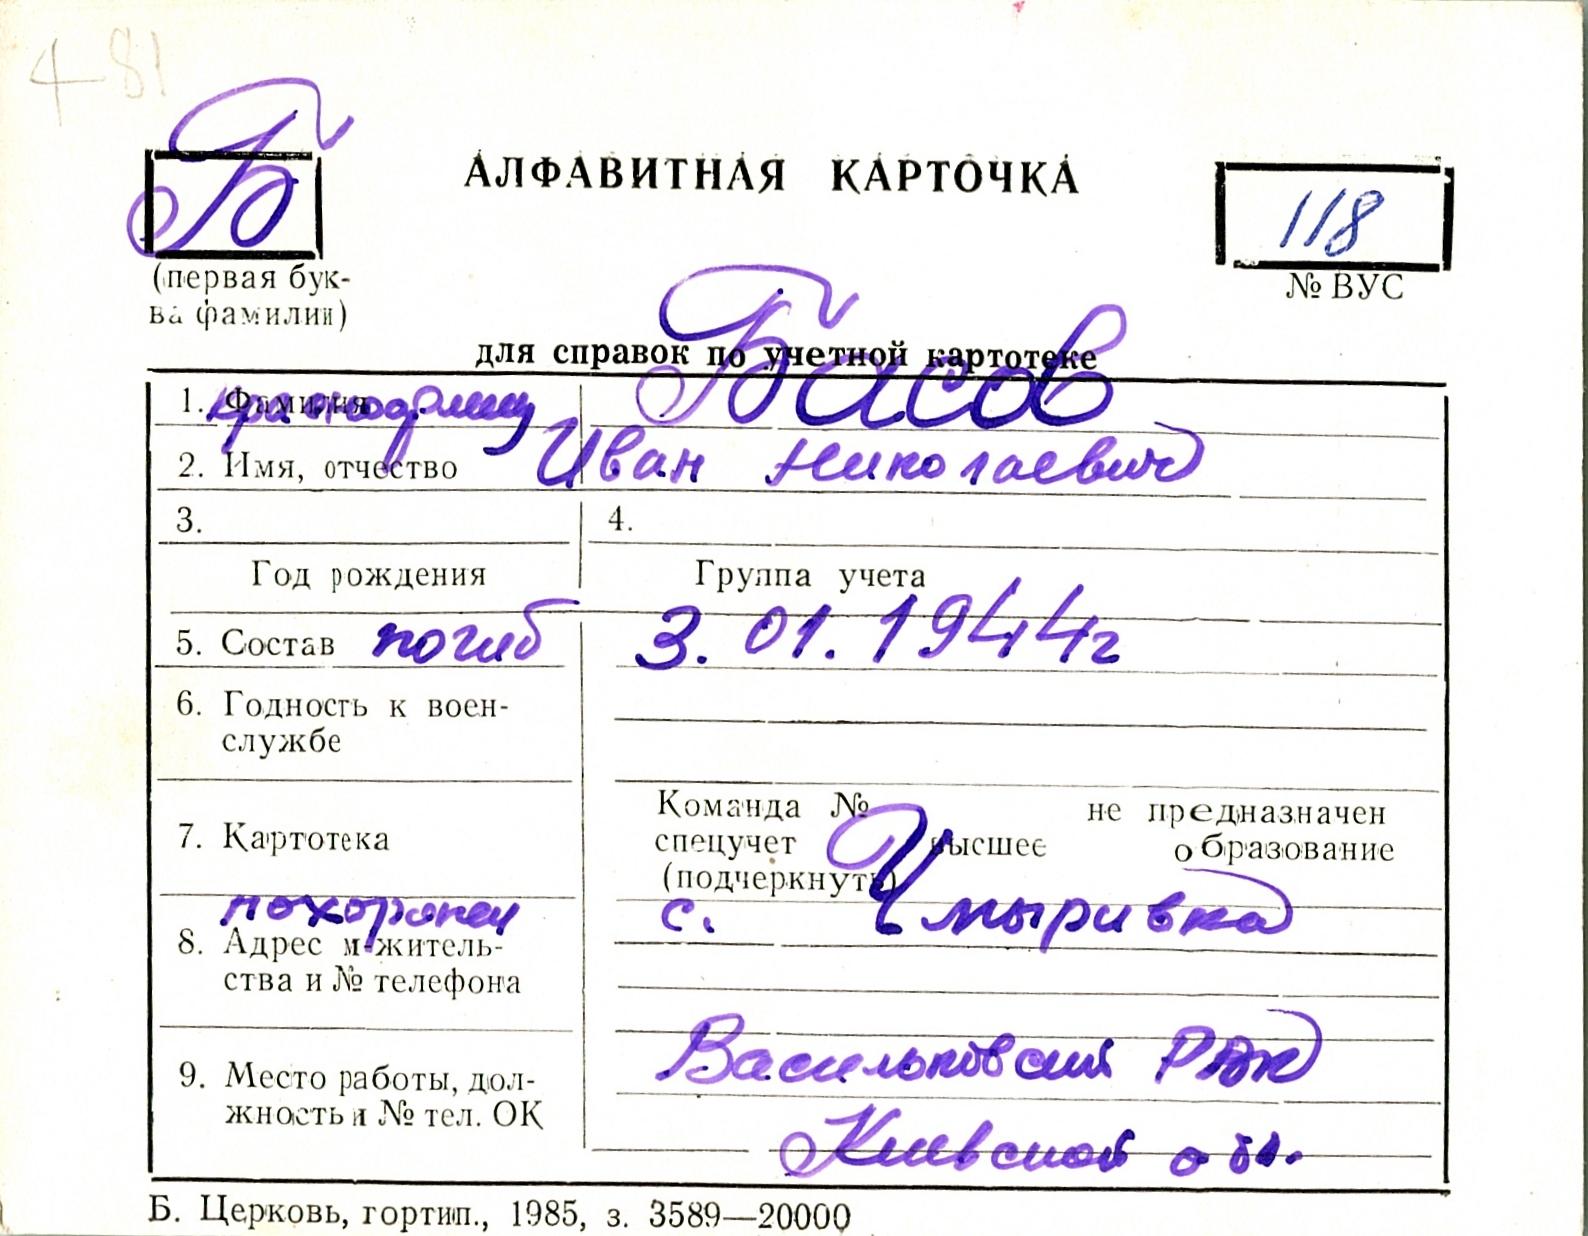 4-81
Б
АЛФАВИТНАЯ КАРТОЧКА
118
(первая бук-
ва фамилии)
№ ВУС
Басов
для справок по учетной картотеке
1. Фамилия
2. Имя, отчество Иван Николаевич
3. 4.
Год рождения Группа учета
5. Состав погиб 3.01.1944г
6. Годность к воен-
службе
7. Картотека
Команда № не предназначен
спецучет высшее образование
(подчеркнуть)
похоронен с.
8. Адрес м-житель-
ства и № телефона
Васильковский
9. Место работы, дол-
жность и № тел. ОК
Киевской обл.
Б. Церковь, гортип., 1985, з. 3589—20000